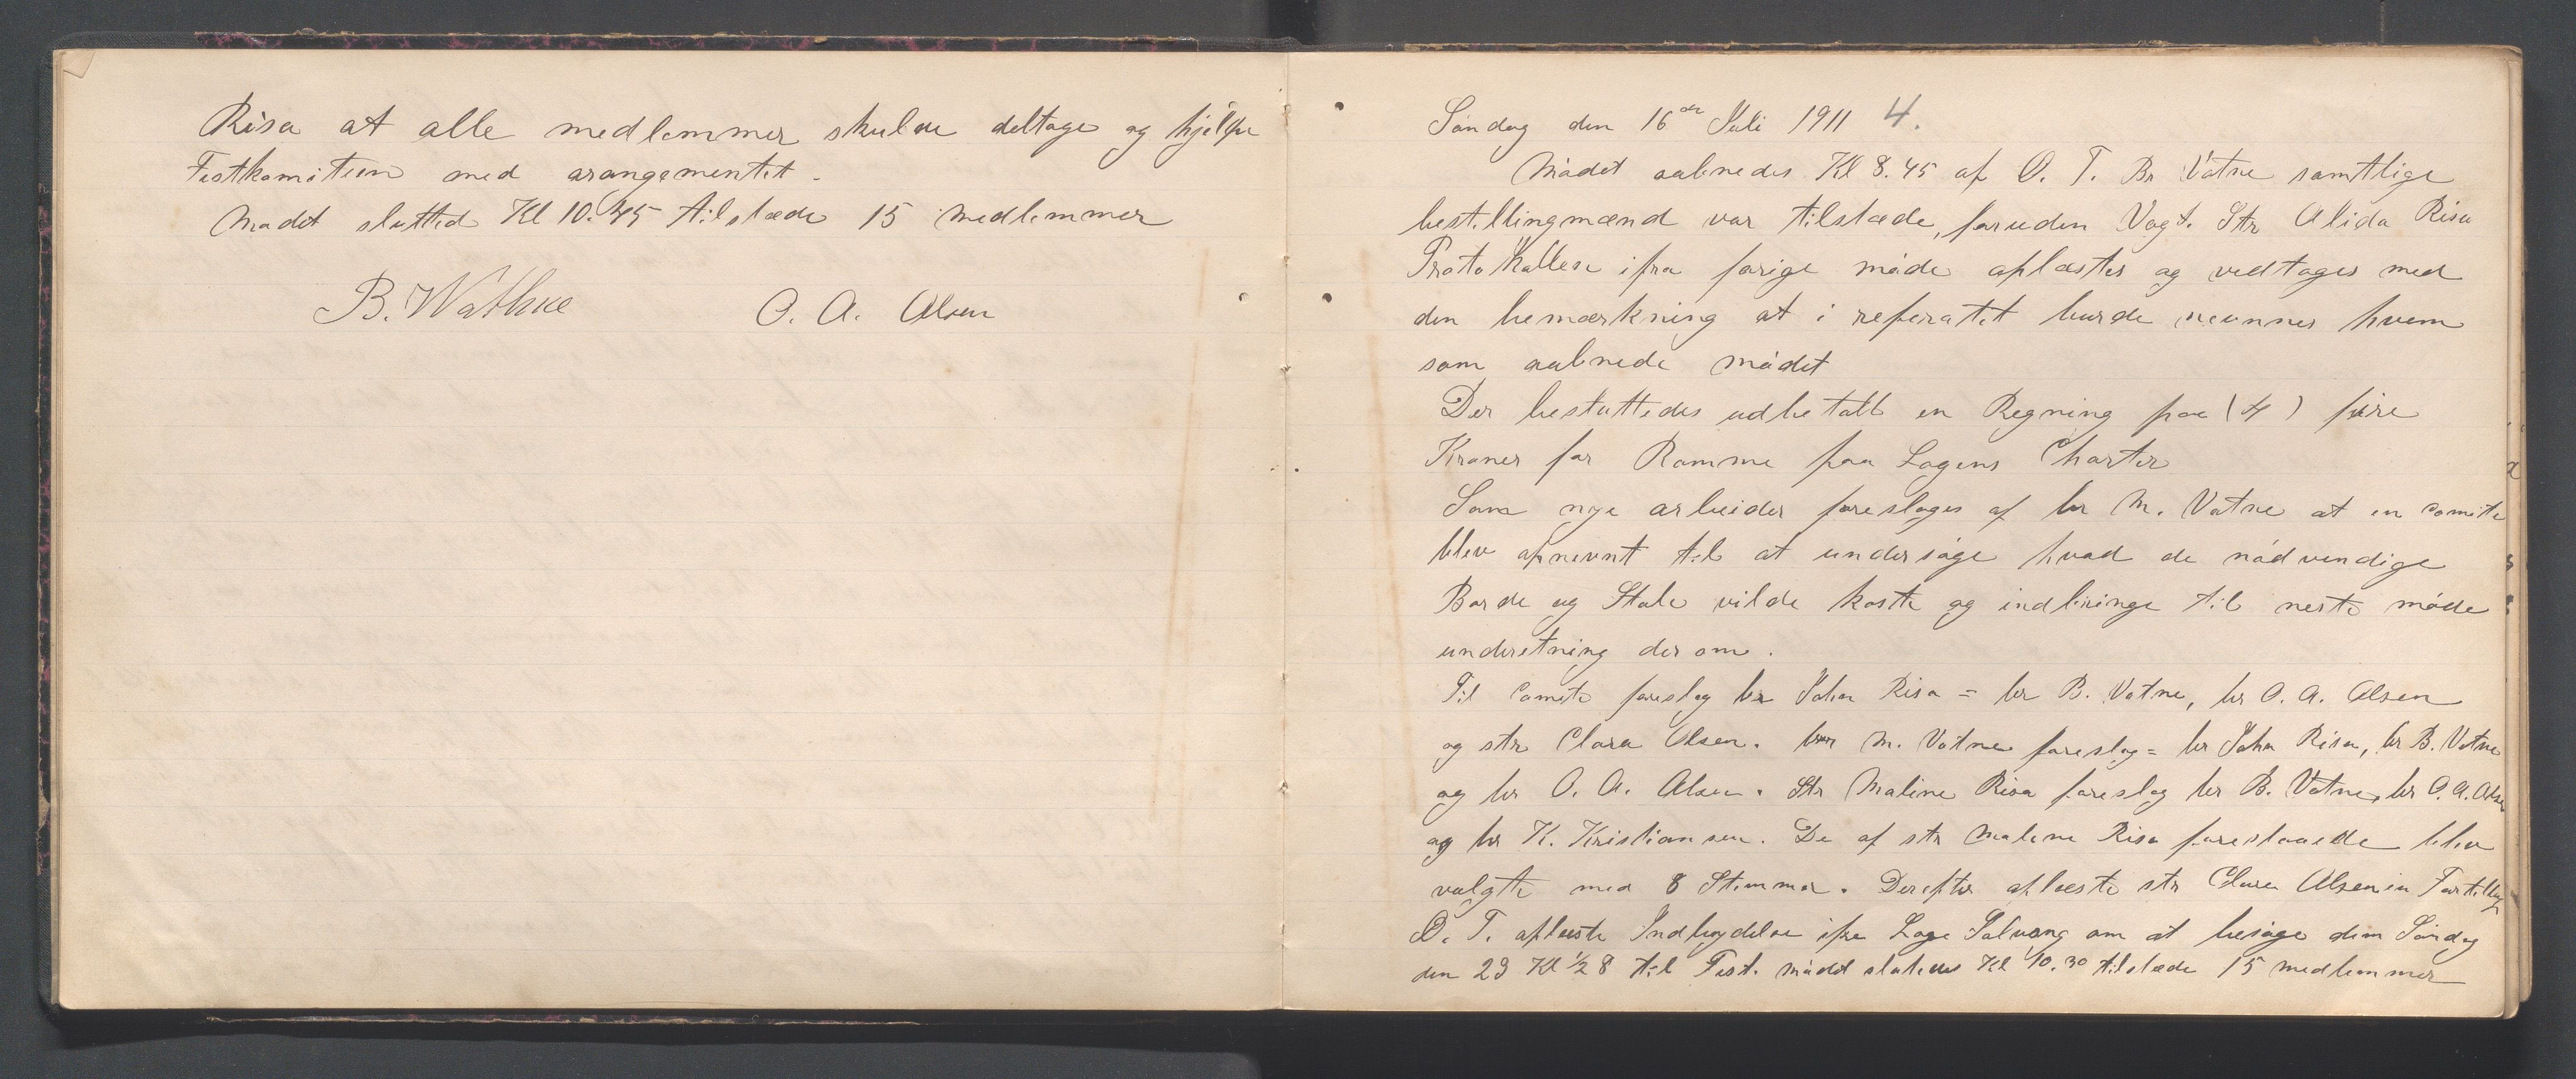 Risa at alle medlemmer skulde deltage og hjelpe
Festkomiteen med arangementet.
Mødet slutted Kl 10.45 tilstede 15 medlemmer
B. Wathne O. A. Olsen
Søndag den 16de Juli 1911 4.
Mødet aabnedes Kl 8.45 af O. T. Br Vatne samtlige
bestillingmænd var tilstæde, foruden Vagt. Str Alida Risa
Protokollen ifra forige møde oplæstes og vedtoges med
den bemærkning at i referatet burde nevnnes hvem
som aabnede mødet
Der besluttedes udbetalt en Regning paa (4) fire
Kroner for Ramme paa Logens Charter
Som nye arbeider foresloges af br M. Vatne at en Comite
blev opnevnt til at undersøge hvad de nødvendige
Borde og Stole vilde koste og indbringe til neste møde
underetning derom.
Til Comite foreslog br John Risa = br B. Vatne, br O. A. Olsen
og str Clara Olsen. br M. Vatne foreslog = br John Risa, br B. Vatne
og br O. A. Olsen. Str Maline Risa foreslog br B. Vatne, br O. A. Olsen
og br K. Kristiansen. De af str Maline Risa foreslaaede blev
valgte med 8 Stemmer. Derefter oplæste str Clara Olsen en Fortelling
O. T. oplæste Indbydelse ifra Loge Solvang om at besøge dem Søndag
den 23 Kl ½ 8 til Fest. mødet sluttedes Kl 10.30 tilstæde 15 medlemmer